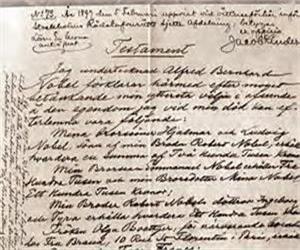 No 73. År 1897 den 5 Februari uppvist vid vittnesförhör inför
Stockholms Rådstufvurätts sjette Afdelning, betyga
Ex officio
Testament
Jag undertecknad Alfred Bernhard
Nobel förklarar härmed efter moget
betänkande min yttersta vilja i afseende
å den egendom jag vid min död kan ef-
terlemna vara följande:
Mina Brorsöner Hjalmar och Ludvig
Nobel, söner af min Broder Robert Nobel, erhålla
hvardera en summa af Två Hundra Tusen Kronor
Min Brorson Emmanuel Nobel erhåller Tre
Hundra Tusen och min Brorsdotter Mina Nobel
Ett Hundra Tusen Kronor;
Min Broder Robert Nobels döttrar Ingeborg
och Tyra erhålla hvardera Ett Hundra Tusen
Fröken Olga Boettger, för närvarande boende
hos Fru Brand, 10 Rue St Florentin, Paris,